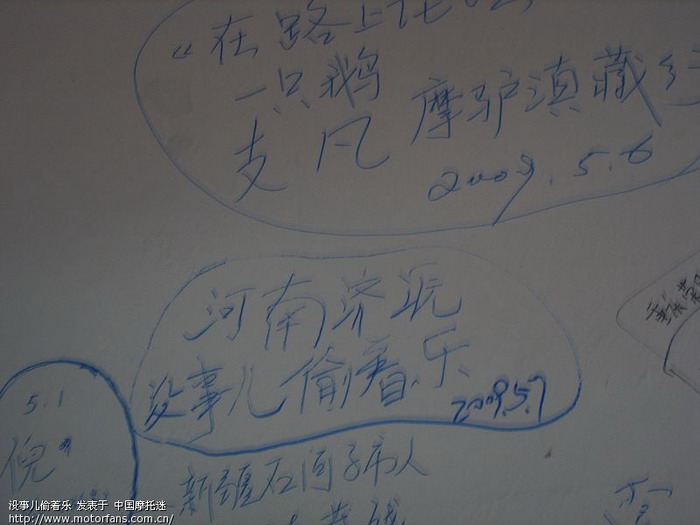 "在路上
一只鹅
支凡 摩驴滇藏
2009.5.6
河南济源
没事儿偷着乐
2009.5.7
5.1
倪
新疆石河子市人
没事儿偷着乐 发表于 中国摩托迷
http://www.motorfans.com.cn/